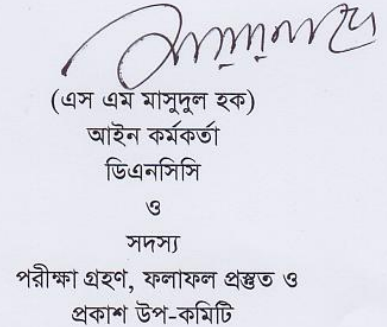 (এস এম মাসুদুল হক)
আইন কর্মকর্তা
ডিএনসিসি
ও
সদস্য
পরীক্ষা গ্রহণ, ফলাফল প্রস্তুত ও
প্রকাশ উপ-কমিটি